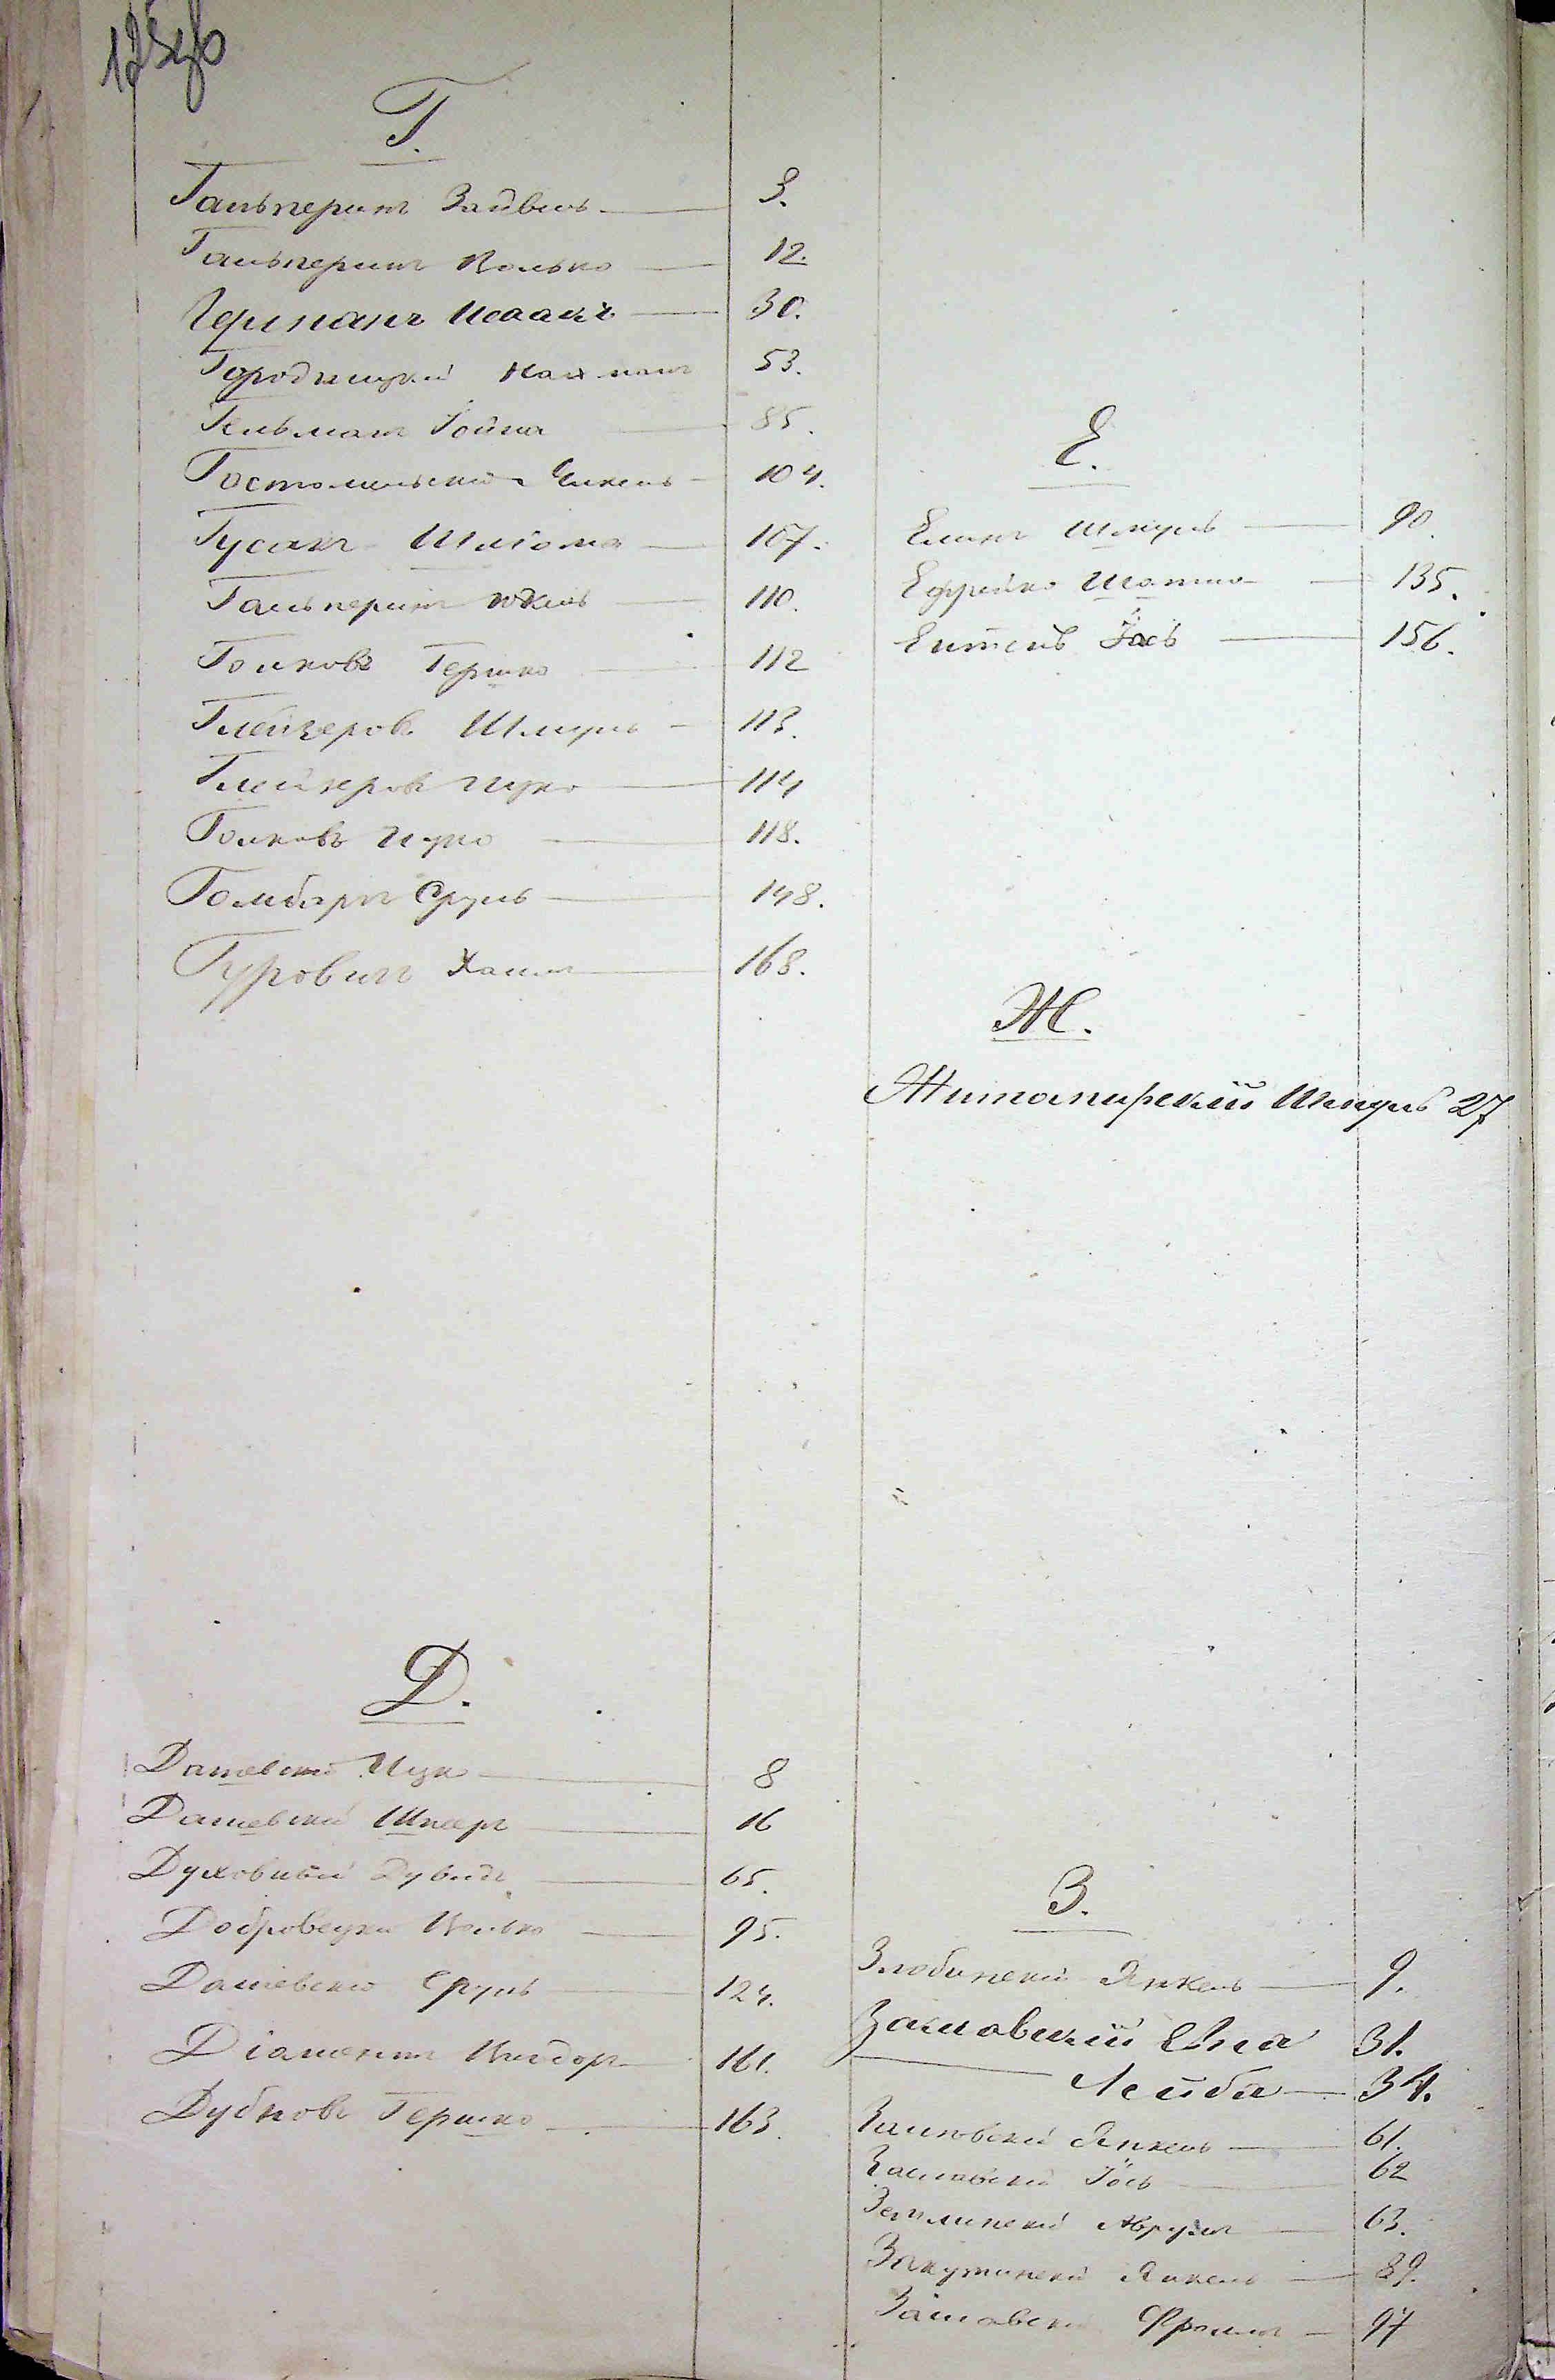 Г.
Гальперинъ Зайвель 3.
Гальперинъ Волько 12.
Германъ Исаакъ 30.
Городницкій Нахманъ 53.
Гельманъ Іойна 85.
Гостомельскій 104.
Гусакъ Шлiома 107.
Гальперинъ Юкель 110.
Голковъ Гершко 112
Глейзеровъ Шмуль 113.
Глейзеровъ Ицко 114
Голковъ Ицко 118.
Гомбарг Сруль 148.
Гуровичъ Хаимъ 168.
Д.
Дашевскій Ицко 8
Дашевскій 16
Духовный Дувидъ 65.
Добровецки Волько 95.
Дашевскій Сруль 124.
Діаментъ 161.
Дубновъ Гершко 163.
Е.
Елинъ Шмуль 90.
Шопшо 135.
Ентель Іось 156.
Ж.
Житомирскій Шмуль 27
З.
Злобинскій Янкель 9.
Заславскій 31.
Лейба 34.
Заславскій Янкель 61.
Заславскій Іось 62
Земплинскій Аврумъ 63.
Закутинскій Янкель 89.
Заславскій Фроимъ 97